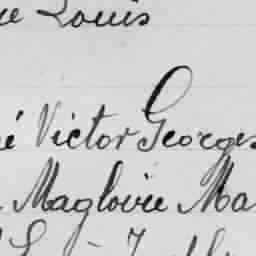 Louis
é Victor Georges
Magloire Ma